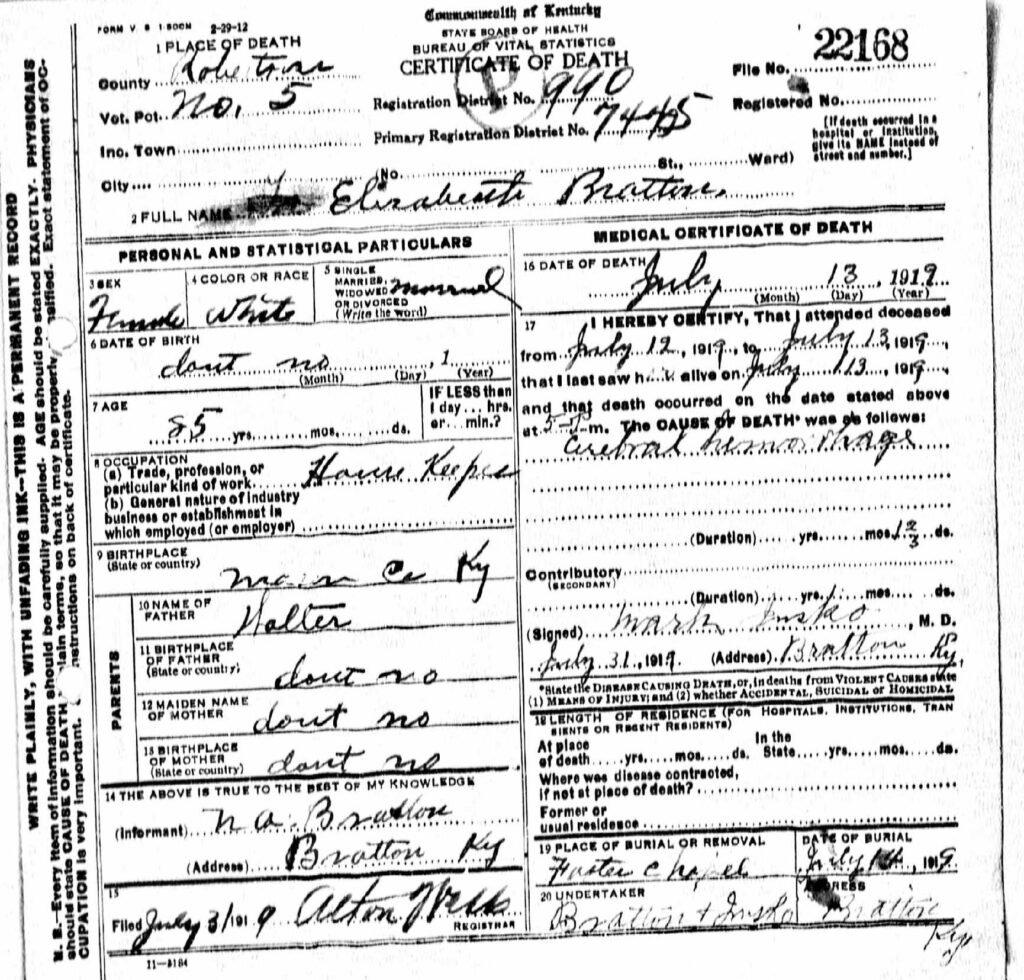 FORM V. S 1-50CM 2-29-12
Commonwealth of Kentucky
STATE BOARD OF HEALTH
BUREAU OF VITAL STATISTICS
CERTIFICATE OF DEATH
File No. 22168
Registered No.
[If death occurred in a hospital or institution, give its NAME instead of street and number.]
1 PLACE OF DEATH
County Robertson
Vot. Pct. No. 5
Inc. Town
City No. St., Ward)
Registration District No. 990
Primary Registration District No. 7445
P
2 FULL NAME Elizabeath Bratton.
PERSONAL AND STATISTICAL PARTICULARS
3 SEX Female
4 COLOR OR RACE White
5 SINGLE, MARRIED, WIDOWED OR DIVORCED (Write the word) Married
6 DATE OF BIRTH
dont no , 1
(Month) (Day) (Year)
7 AGE
85 yrs. mos. ds.
IF LESS than 1 day... hrs. or... min.?
8 OCCUPATION
(a) Trade, profession, or particular kind of work House Keeper
(b) General nature of industry business or establishment in which employed (or employer)
9 BIRTHPLACE
(State or country) Co Ky
PARENTS
10 NAME OF FATHER Walter
11 BIRTHPLACE OF FATHER (State or country) dont no
12 MAIDEN NAME OF MOTHER dont no
13 BIRTHPLACE OF MOTHER (State or country) dont no
14 THE ABOVE IS TRUE TO THE BEST OF MY KNOWLEDGE
(Informant) N. A. Bratton
(Address) Bratton Ky
15
Filed July 31 1919 Alton Wells
REGISTRAR
11-3184
MEDICAL CERTIFICATE OF DEATH
16 DATE OF DEATH July 13, 1919
(Month) (Day) (Year)
17 I HEREBY CERTIFY, That I attended deceased
from July 12, 1919, to July 13, 1919,
that I last saw h alive on July 13, 1919,
and that death occurred on the date stated above
at 5 P m. The CAUSE OF DEATH* was as follows:
Cerebral hemorrhage
(Duration) yrs. mos. ds.
Contributory
(SECONDARY)
(Duration) yrs. mos. ds.
(Signed) Mark Insko, M. D.
July 31, 1919 (Address) Bratton Ky.
*State the DISEASE CAUSING DEATH, or, in deaths from VIOLENT CAUSES state
(1) MEANS OF INJURY; and (2) whether ACCIDENTAL, SUICIDAL or HOMICIDAL
18 LENGTH OF RESIDENCE (FOR HOSPITALS, INSTITUTIONS, TRANSIENTS OR RECENT RESIDENTS)
At place of death yrs. mos. ds. In the State yrs. mos. ds.
Where was disease contracted,
if not at place of death?
Former or
usual residence
19 PLACE OF BURIAL OR REMOVAL
Foster Chapel
DATE OF BURIAL
July 14, 1919
20 UNDERTAKER
Bratton & Insko
ADDRESS
Bratton Ky.
WRITE PLAINLY, WITH UNFADING INK—THIS IS A PERMANENT RECORD
N. B.—Every item of information should be carefully supplied. AGE should be stated EXACTLY. PHYSICIANS
should state CAUSE OF DEATH plain terms, so that it may be properly Exact statement of OC-
CUPATION is very important. on back of certificate.